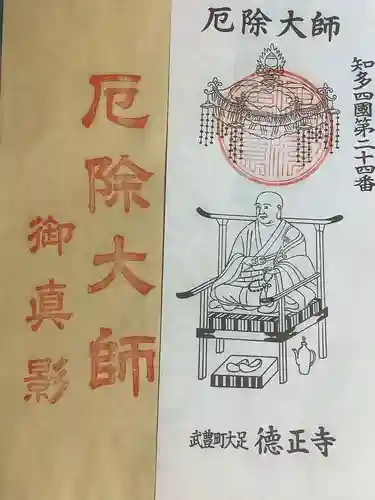 厄除大師
知多四國第二十四番
武豊町大足 德正寺
厄除大師
御真影